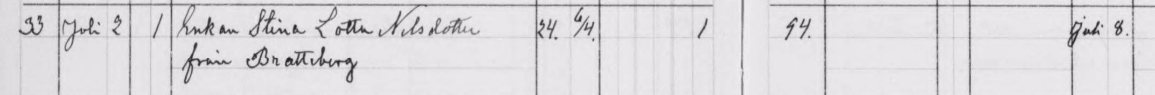 33 Juli 2 1 Enkan Stina Lotta Nilsdotter 24. 6/4. 1 94. Juli 8.
från Brattsberg